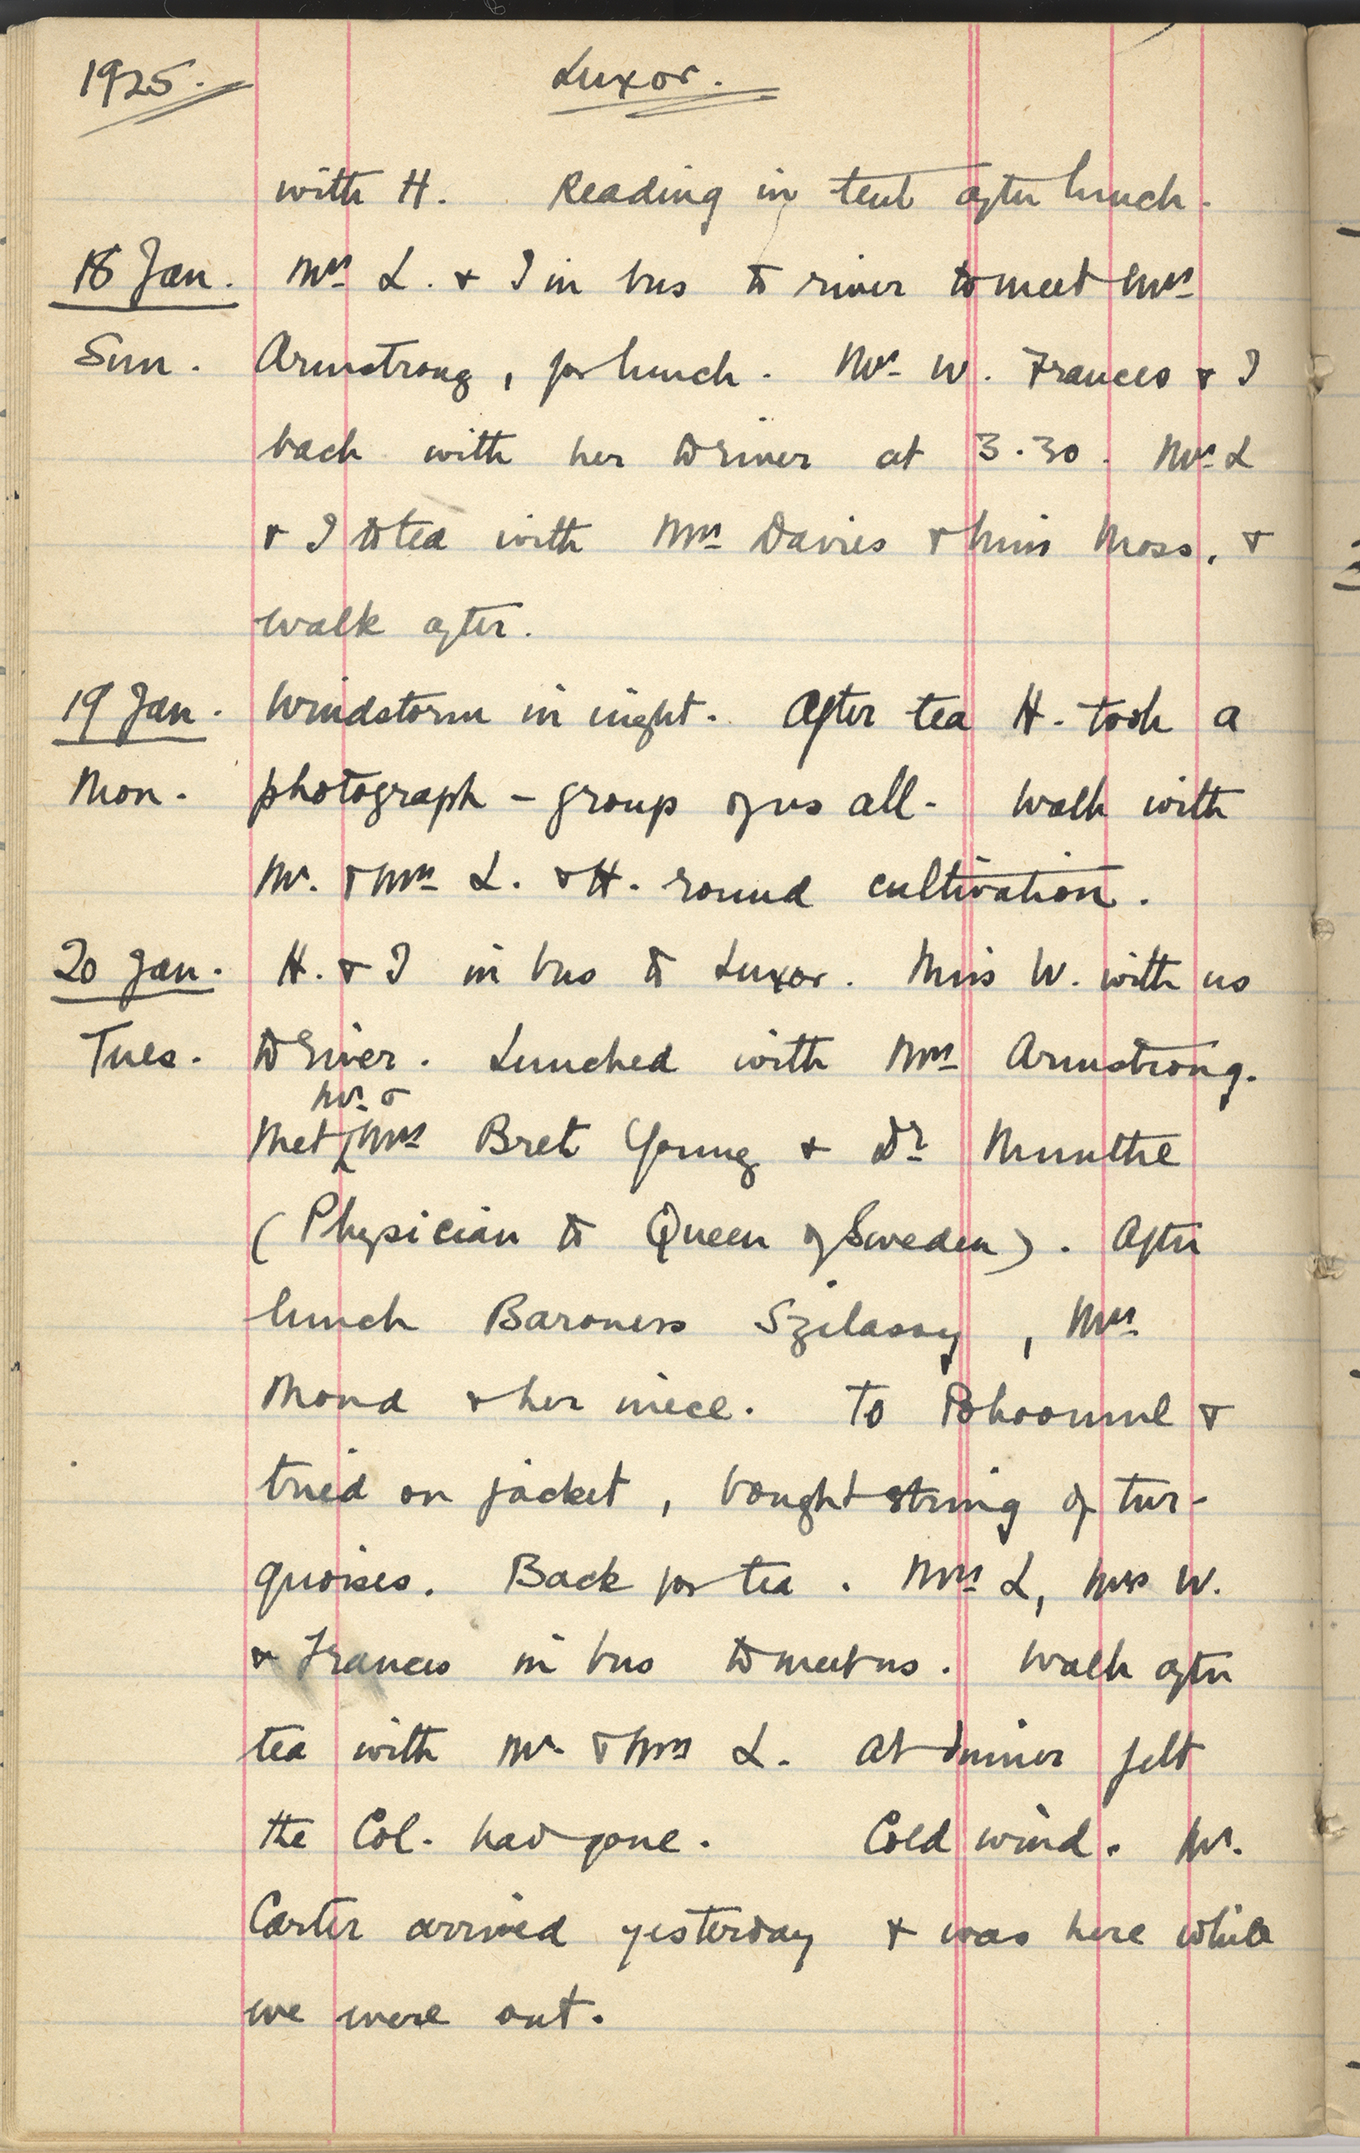 1925. Luxor.
with H. Reading in tent after lunch.
18 Jan. Mrs L. & I in bus to river to meet Mrs
Sun. Armstrong, for lunch. Mr. W. Frances & I
back with her to river at 3.30. Mrs L
& I to tea with Mrs Davies & Miss Moss, &
walk after.
19 Jan. Windstorm in night. After tea H. took a
Mon. photograph – group of us all. Walk with
Mr. & Mrs L. & H. round cultivation.
20 Jan. H. & I in bus to Luxor. Miss W. with us
Tues. to river. Lunched with Mrs Armstrong.
Mr. &
Met Mrs Bret Young & Dr Munthe
(Physician to Queen of Sweden). After
lunch Baroness Szilassy, Mrs
Mond & her niece. To Pohoomul &
tried on jacket, bought string of tur-
quoises. Back for tea. Mrs L, Miss W.
& Frances in bus to meet us. Walk after
tea with Mr. & Mrs L. At dinner felt
the Col. had gone. Cold wind. Mr.
Carter arrived yesterday & was here while
we were out.